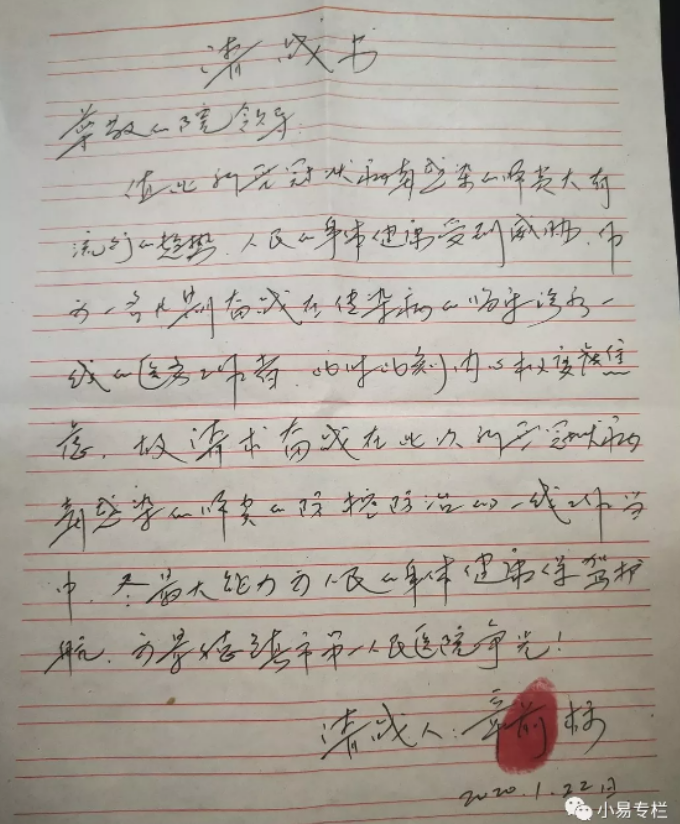 请战书
尊敬的院领导:
值此新型冠状病毒感染的肺炎大有
流行的趋势、人民的身体健康受到威胁、作
为一名长期奋战在传染病的临床诊疗一
线的医务工作者、此时此刻内心极度焦
虑、故请求奋战在此次新型冠状病
毒感染的肺炎的防控防治的一线工作当
中、尽最大能力为人民的身体健康保驾护
航、为景德镇市第一人民医院争光!
请战人:章前
2020.1.22日
小易专栏